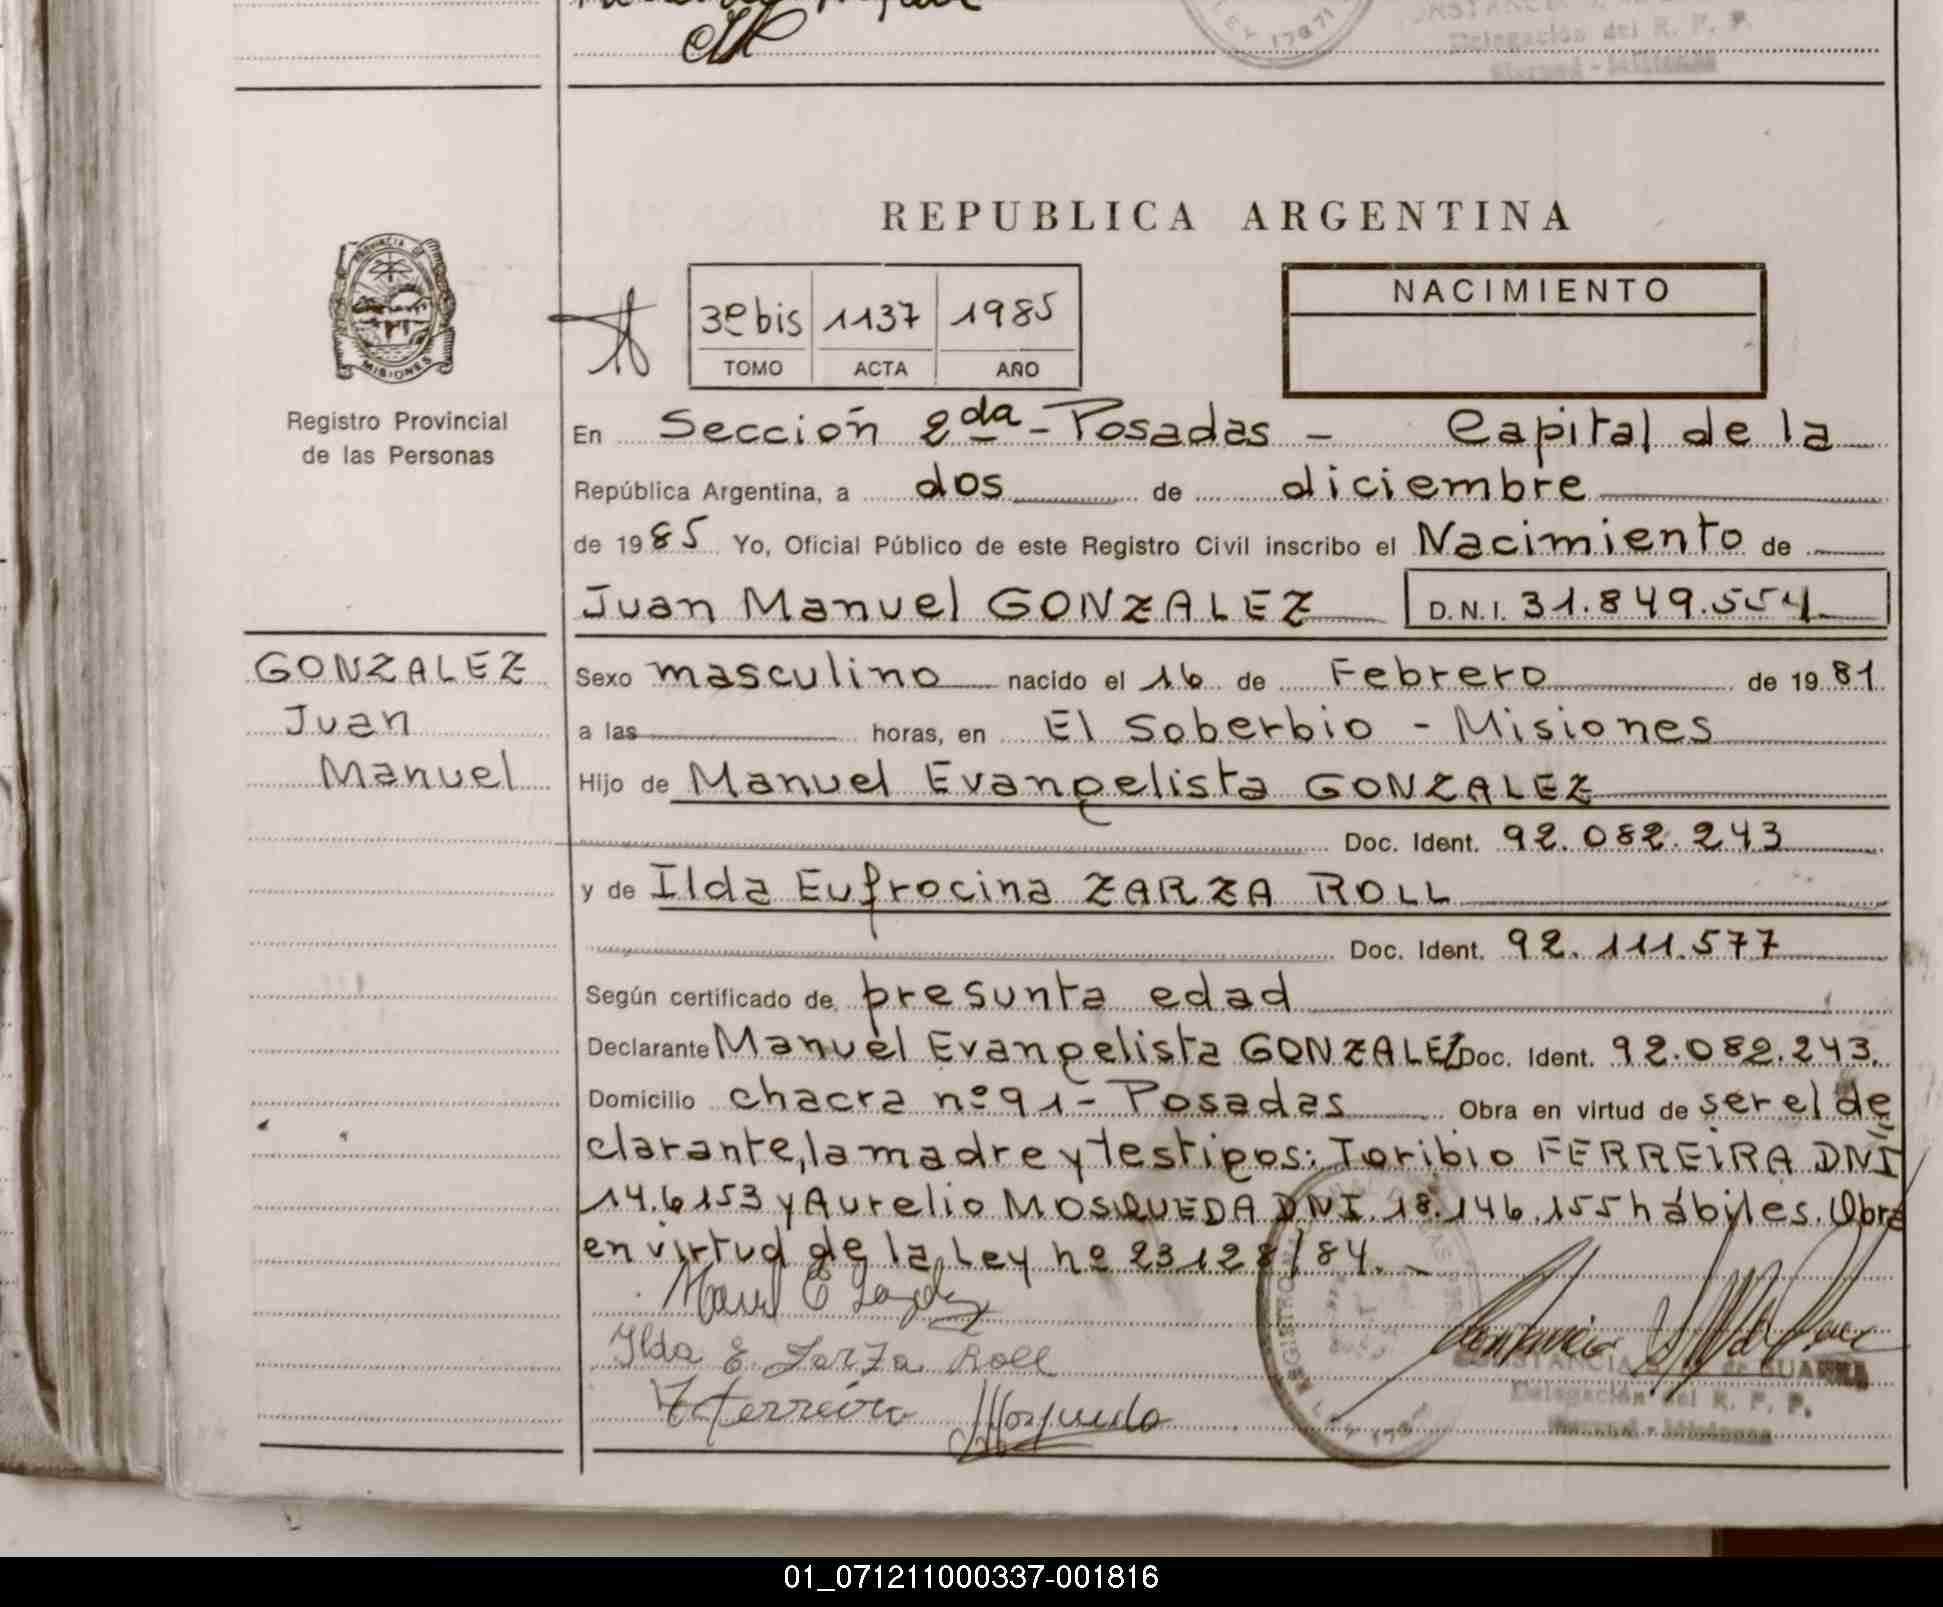 REPUBLICA ARGENTINA
PROVINCIA DE
MISIONES
Registro Provincial
de las Personas
3º bis 1137 1985
TOMO ACTA AÑO
NACIMIENTO
En Sección 2da - Posadas - Capital de la
República Argentina, a dos de diciembre
de 1985 Yo, Oficial Público de este Registro Civil inscribo el Nacimiento de
Juan Manuel GONZALEZ D.N.I. 31.849.554
GONZALEZ
Juan
Manuel
Sexo masculino nacido el 16 de Febrero de 1981
a las horas, en El Soberbio - Misiones
Hijo de Manuel Evangelista GONZALEZ
Doc. Ident. 92.082.243
y de Ilda Eufrocina ZARZA ROLL
Doc. Ident. 92.111.577
Según certificado de presunta edad
Declarante Manuel Evangelista GONZALEZ Doc. Ident. 92.082.243.
Domicilio chacra nº 91 - Posadas Obra en virtud de ser el de
clarante, la madre y testigos: Toribio FERREIRA DNI
14.6153 y Aurelio MOSQUEDA DNI. 18.146.155 hábiles. Obra
en virtud de la Ley nº 23128/84.
Ilda E. Zarza Roll
T. Ferreira
Mosqueda
Delegación del R. P. P.
01_071211000337-001816